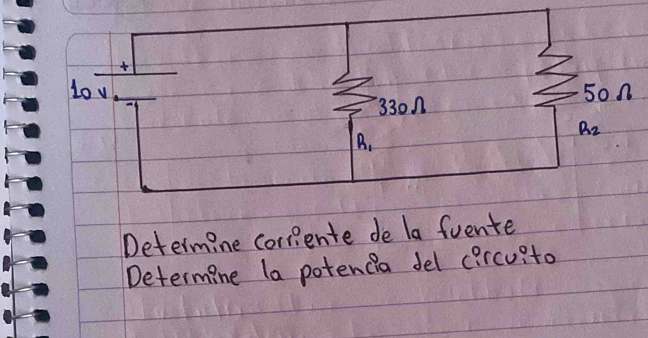 +
10 v.
-
330Ω
R₁
50Ω
R₂
Determine corriente de la fuente
Determine la potencia del circuito